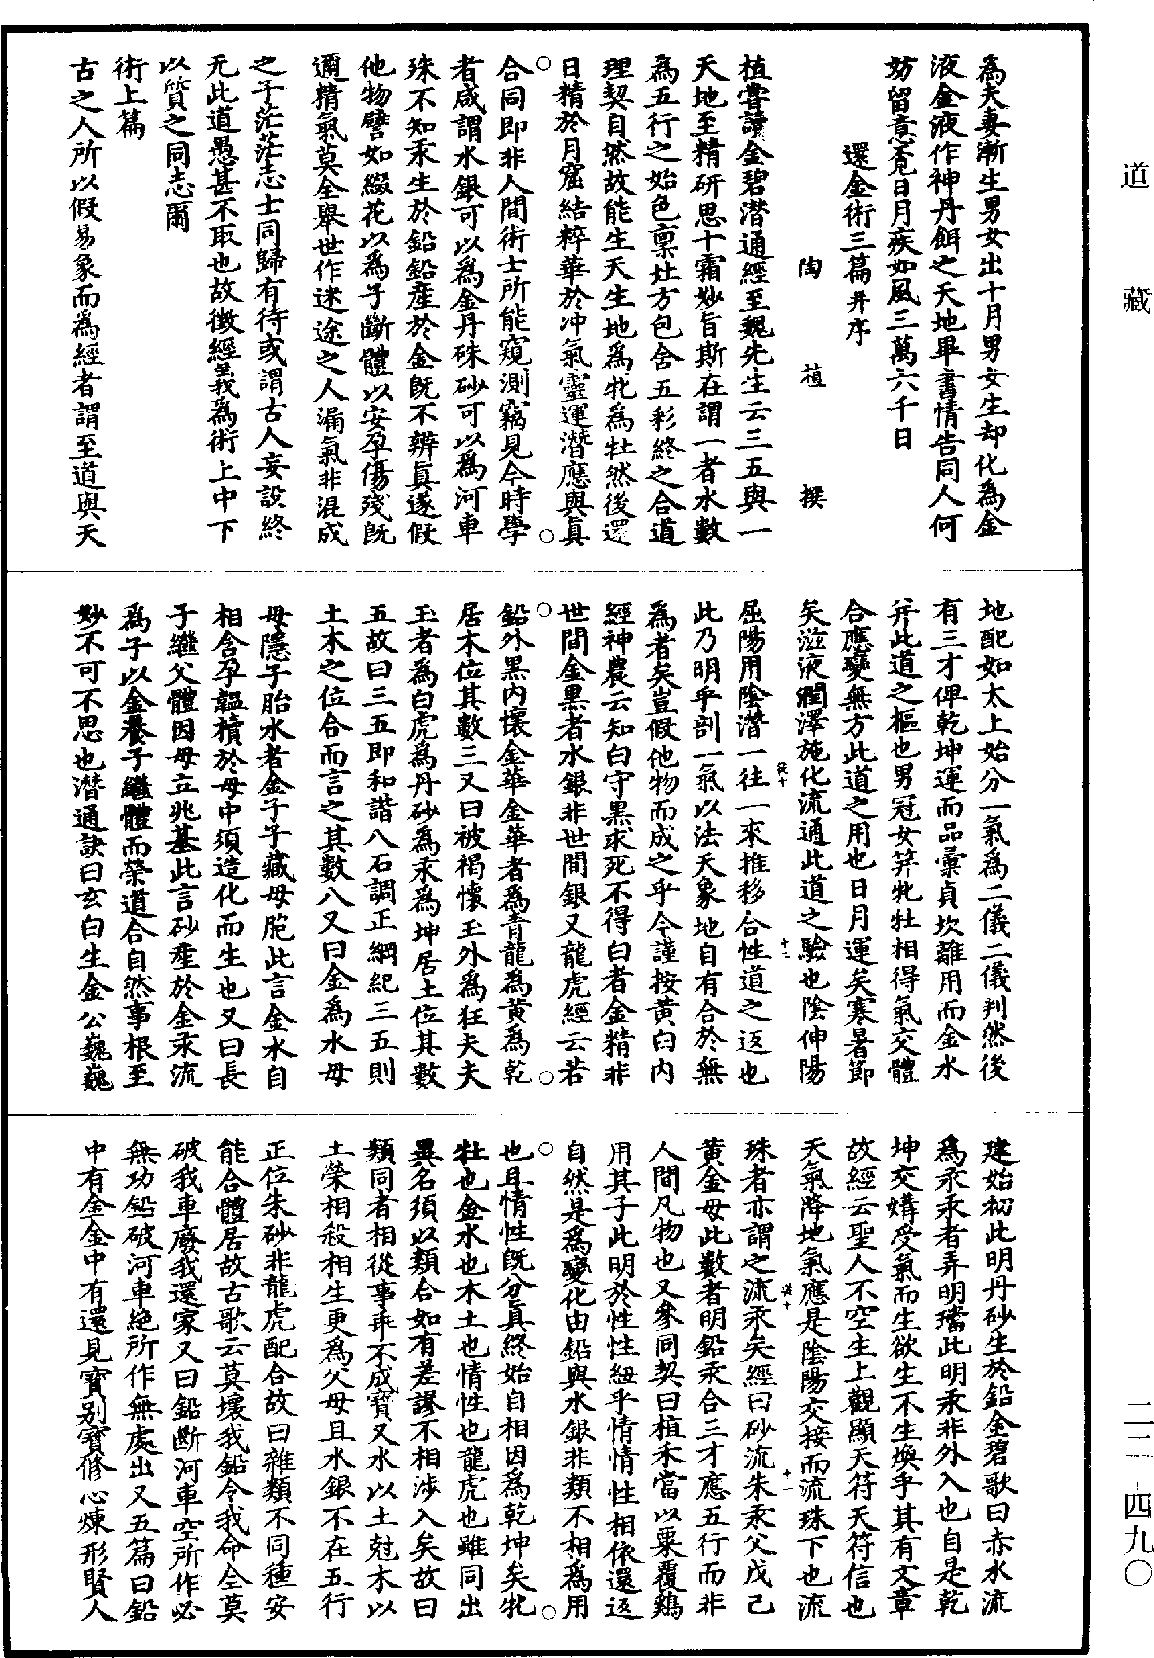 道藏
二二-四九〇
為夫妻漸生男女出十月男女生却化為金
液金液作神丹餌之天地畢書情告同人何
妨留意覓日月疾如風三萬六千日
還金術三篇并序
陶植撰
植嘗讀金碧潛通經至魏先生云三五與一
天地至精研思十霜妙旨斯在謂一者水數
為五行之始色稟北方包含五彩終之合道
理契自然故能生天生地為牝為牡然後還
日精於月窟結粹華於冲氣靈運潛應與真
合同即非人間術士所能窺測竊見今時學
者咸謂水銀可以為金丹硃砂可以為河車
殊不知汞生於鉛鉛產於金既不辨真遂假
他物譬如綴花以為子斷體以安孕傷殘既
邇精氣莫全舉世作迷途之人漏氣非混成
之子茫茫志士同歸有待或謂古人妄設終
无此道愚甚不取也故徵經義為術上中下
以質之同志爾
術上篇
古之人所以假易象而為經者謂至道與天
地配如太上始分一氣為二儀二儀判然後
有三才俾乾坤運而品彙貞坎離用而金水
并此道之樞也男冠女笄牝牡相得氣交體
合應變無方此道之用也日月運矣寒暑節
矣滋液潤澤施化流通此道之驗也陰伸陽
屈陽用陰潛一往一來推移合性道之返也
此乃明乎剖一氣以法天象地自有合於無
為者矣豈假他物而成之乎今謹按黃白內
經神農云知白守黑求死不得白者金精非
世間金黑者水銀非世間銀又龍虎經云若
鉛外黑內懷金華金華者為青龍為黃為乾
居木位其數三又曰被褐懷玉外為狂夫夫
玉者為白虎為丹砂為汞為坤居土位其數
五故曰三五即和諧八石調正綱紀三五則
土木之位合而言之其數八又曰金為水母
母隱子胎水者金子子藏母胞此言金水自
相含孕韞櫝於母中須造化而生也又曰長
子繼父體因母立兆基此言砂產於金汞流
為子以金養子繼體而榮道合自然事根至
妙不可不思也潛通訣曰玄白生金公巍巍
建始初此明丹砂生於鉛金碧歌曰赤水流
為汞汞者弄明璫此明汞非外入也自是乾
坤交媾受氣而生欲生不生煥乎其有文章
故經云聖人不空生上觀顯天符天符信也
天氣降地氣應是陰陽交接而流珠下也流
珠者亦謂之流汞矣經曰砂流朱汞父戊己
黃金母此數者明鉛汞合三才應五行而非
人間凡物也又參同契曰植禾當以粟覆鷄
用其子此明於性性紐乎情情性相依還返
自然是為變化由鉛與水銀非類不相為用
也且情性既分真終始自相因為乾坤矣牝
牡也金水也木土也情性也龍虎也雖同出
異名須以類合如有差謬不相涉入矣故曰
類同者相從事乖不成寶又水以土尅木以
土榮相殺相生更為父母且水銀不在五行
正位朱砂非龍虎配合故曰雜類不同種安
能合體居故古歌云莫壞我鉛令我命全莫
破我車廢我還家又曰鉛斷河車空所作必
無功鉛破河車絕所作無處出又五篇曰鉛
中有金金中有還見寶別寶修心煉形賢人